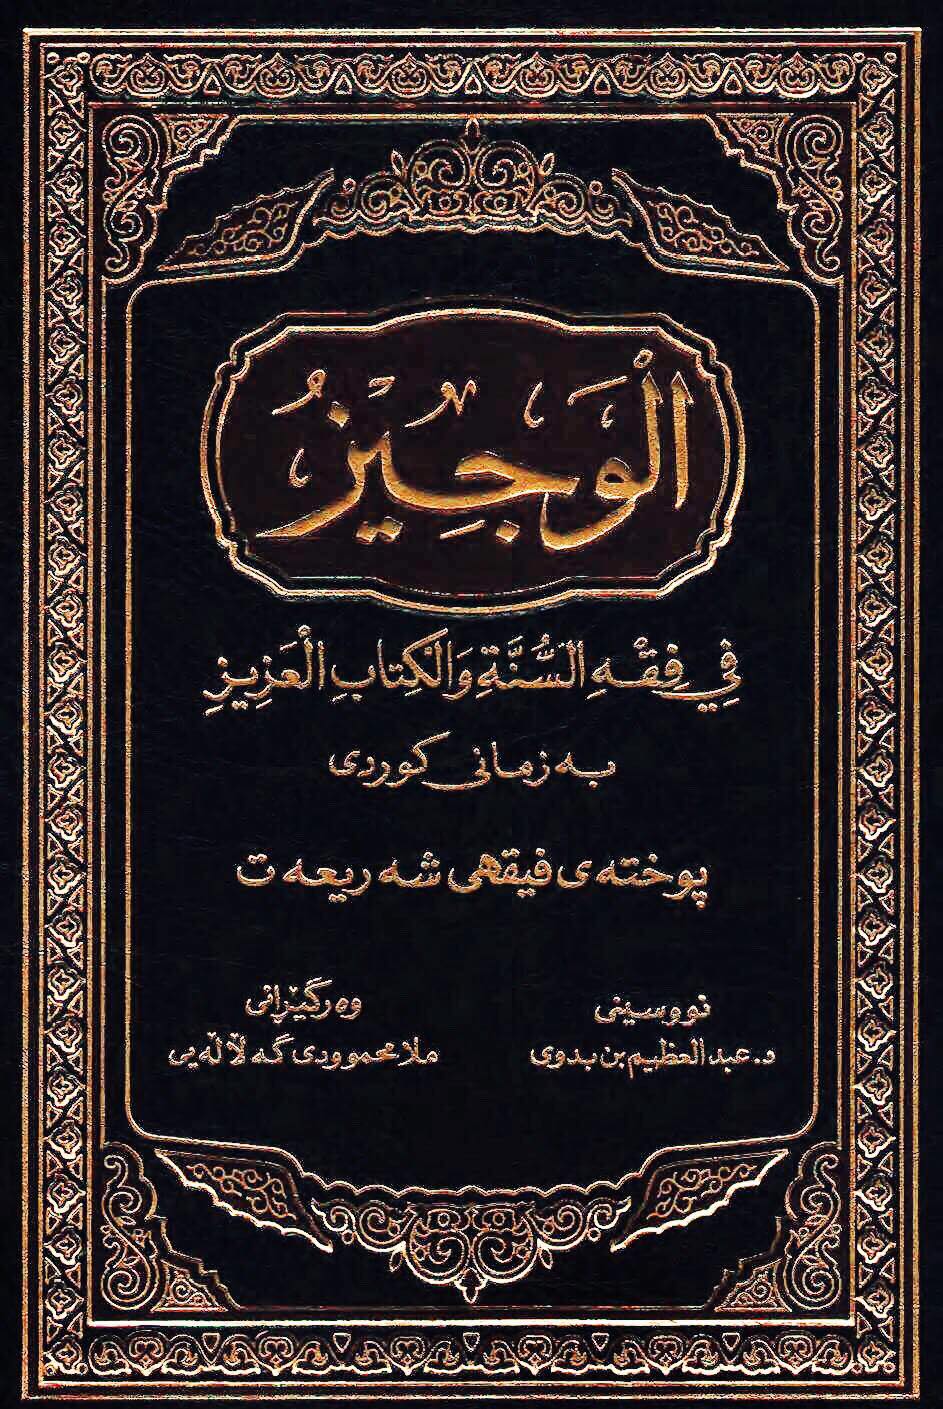 الْوَجِيزُ
فِي فِقْهِ السُّنَّةِ وَالْكِتَابِ الْعَزِيزِ
بە زمانی کوردی
پوختەی فیقهی شەریعەت
نووسینی
د. عبدالعظیم بن بدوی
وەرگێڕانی
ملا محموودی گەڵاڵەیی